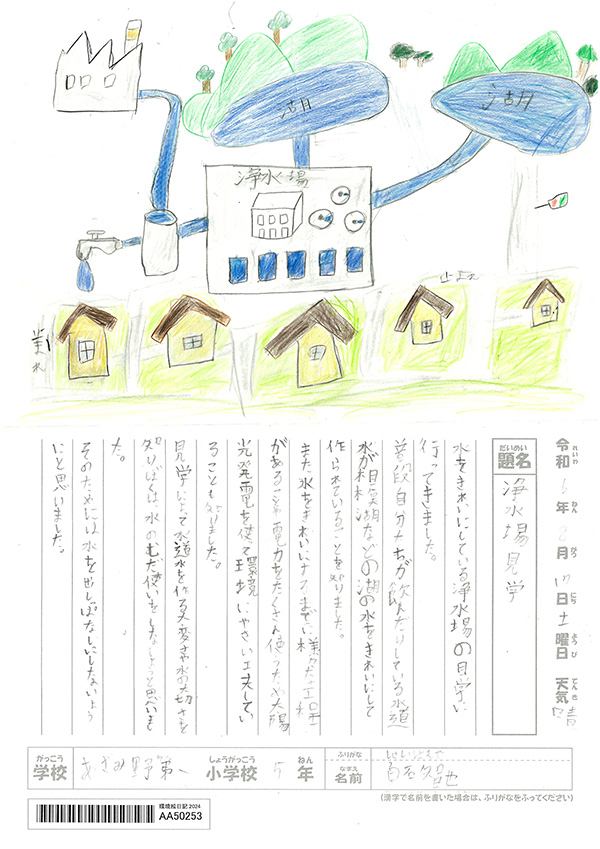 湖
湖
浄水場
令和6年8月17日土曜日 天気 晴
れいわ ねん がつ にち ようび てんき
だいめい
題名
浄水場見学
水をきれいにしている浄水場の見学に
行ってきました。
普段自分たちが飲んだりしている水道
水が相模湖などの湖の水をきれいにして
作られていることを知りました。
また水をきれいにするまでに様々な工程
があることや電力をたくさん使うため太陽
光発電を使って環境にやさしい工夫してい
ることも知りました。
見学によって水道水を作る大変さや水の大切さを
知りぼくは、水のむだ使いをしないようと思いまし
た。
そのためには水を出しっぱなしにしないよう
にと思いました。
がっこう
学校
あざみ野第一
しょうがっこう
小学校
5
ねん
年
ふりがな
なまえ
名前
(漢字で名前を書いた場合は、ふりがなをふってください)
環境絵日記2024
AA50253